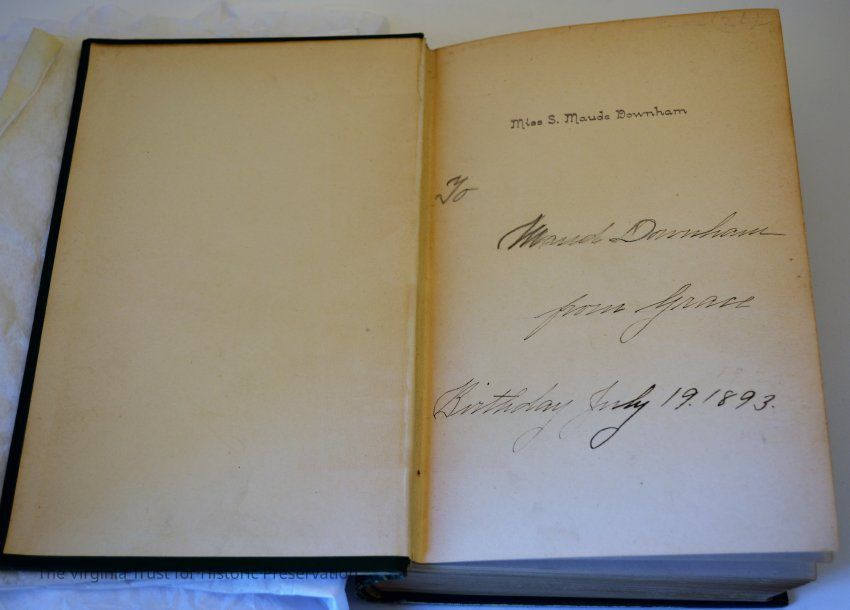 Miss S. Maude Downham
To
Maud Downham
from Grace
Birthday July 19. 1893.
The Virginia Trust for Historic Preservation